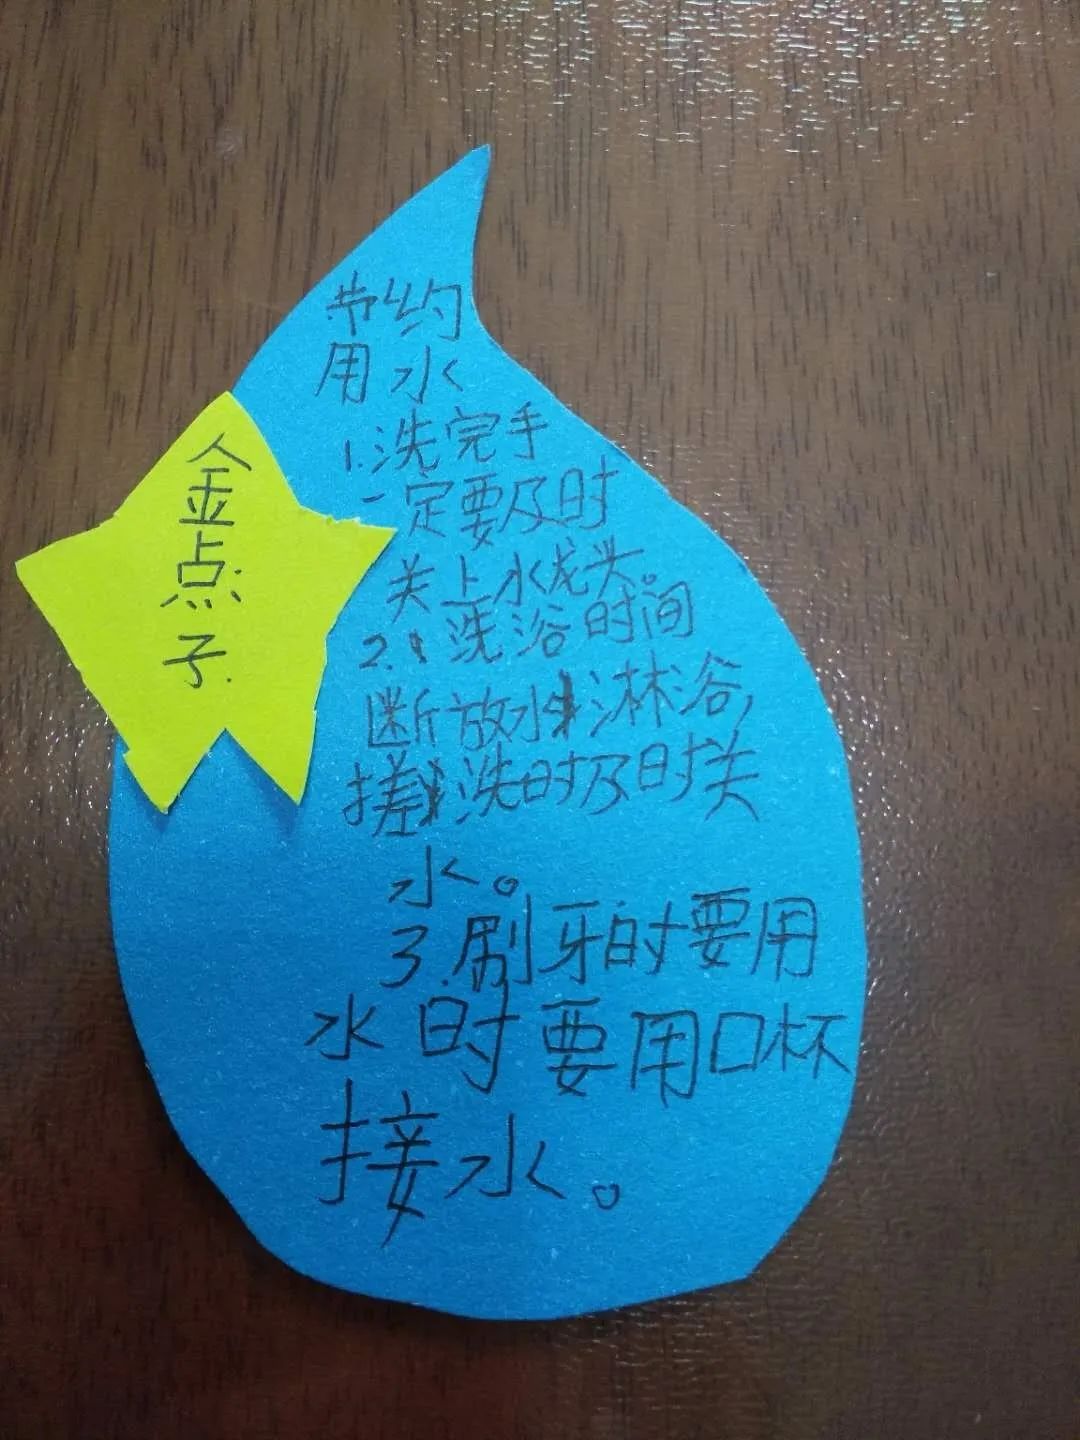 金点子
节约
用水
1.洗完手
一定要及时
关上水龙头。
2.洗浴时间
断放水淋浴,
搓洗时及时关
水。
3.刷牙时要用
水时要用口杯
接水。